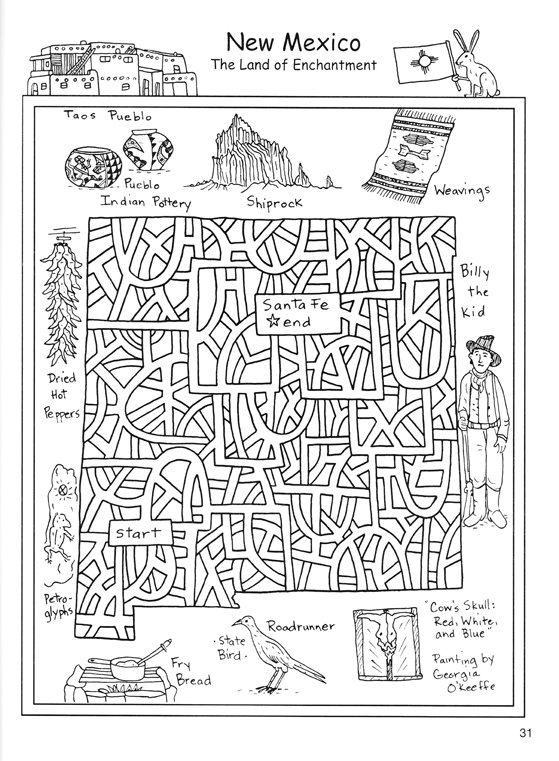 New Mexico
The Land of Enchantment
Taos Pueblo
Pueblo
Indian Pottery
Shiprock
Weavings
Billy
the
Kid
Santa Fe
☆end
Dried
Hot
Peppers
start
Petro-
glyphs
Fry
Bread
·State
Bird·
Roadrunner
"Cow's Skull:
Red, White,
and Blue"
Painting by
Georgia
O'Keeffe
31